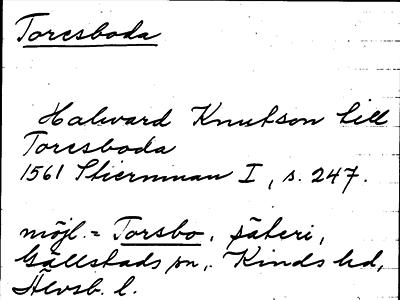 Toresboda
Halward Knutson till
Toresboda
1561 Stiernman I, s. 247.
möjl. = Torsbo, säteri,
Gällstads sn, Kinds hd,
Älvsb. l.